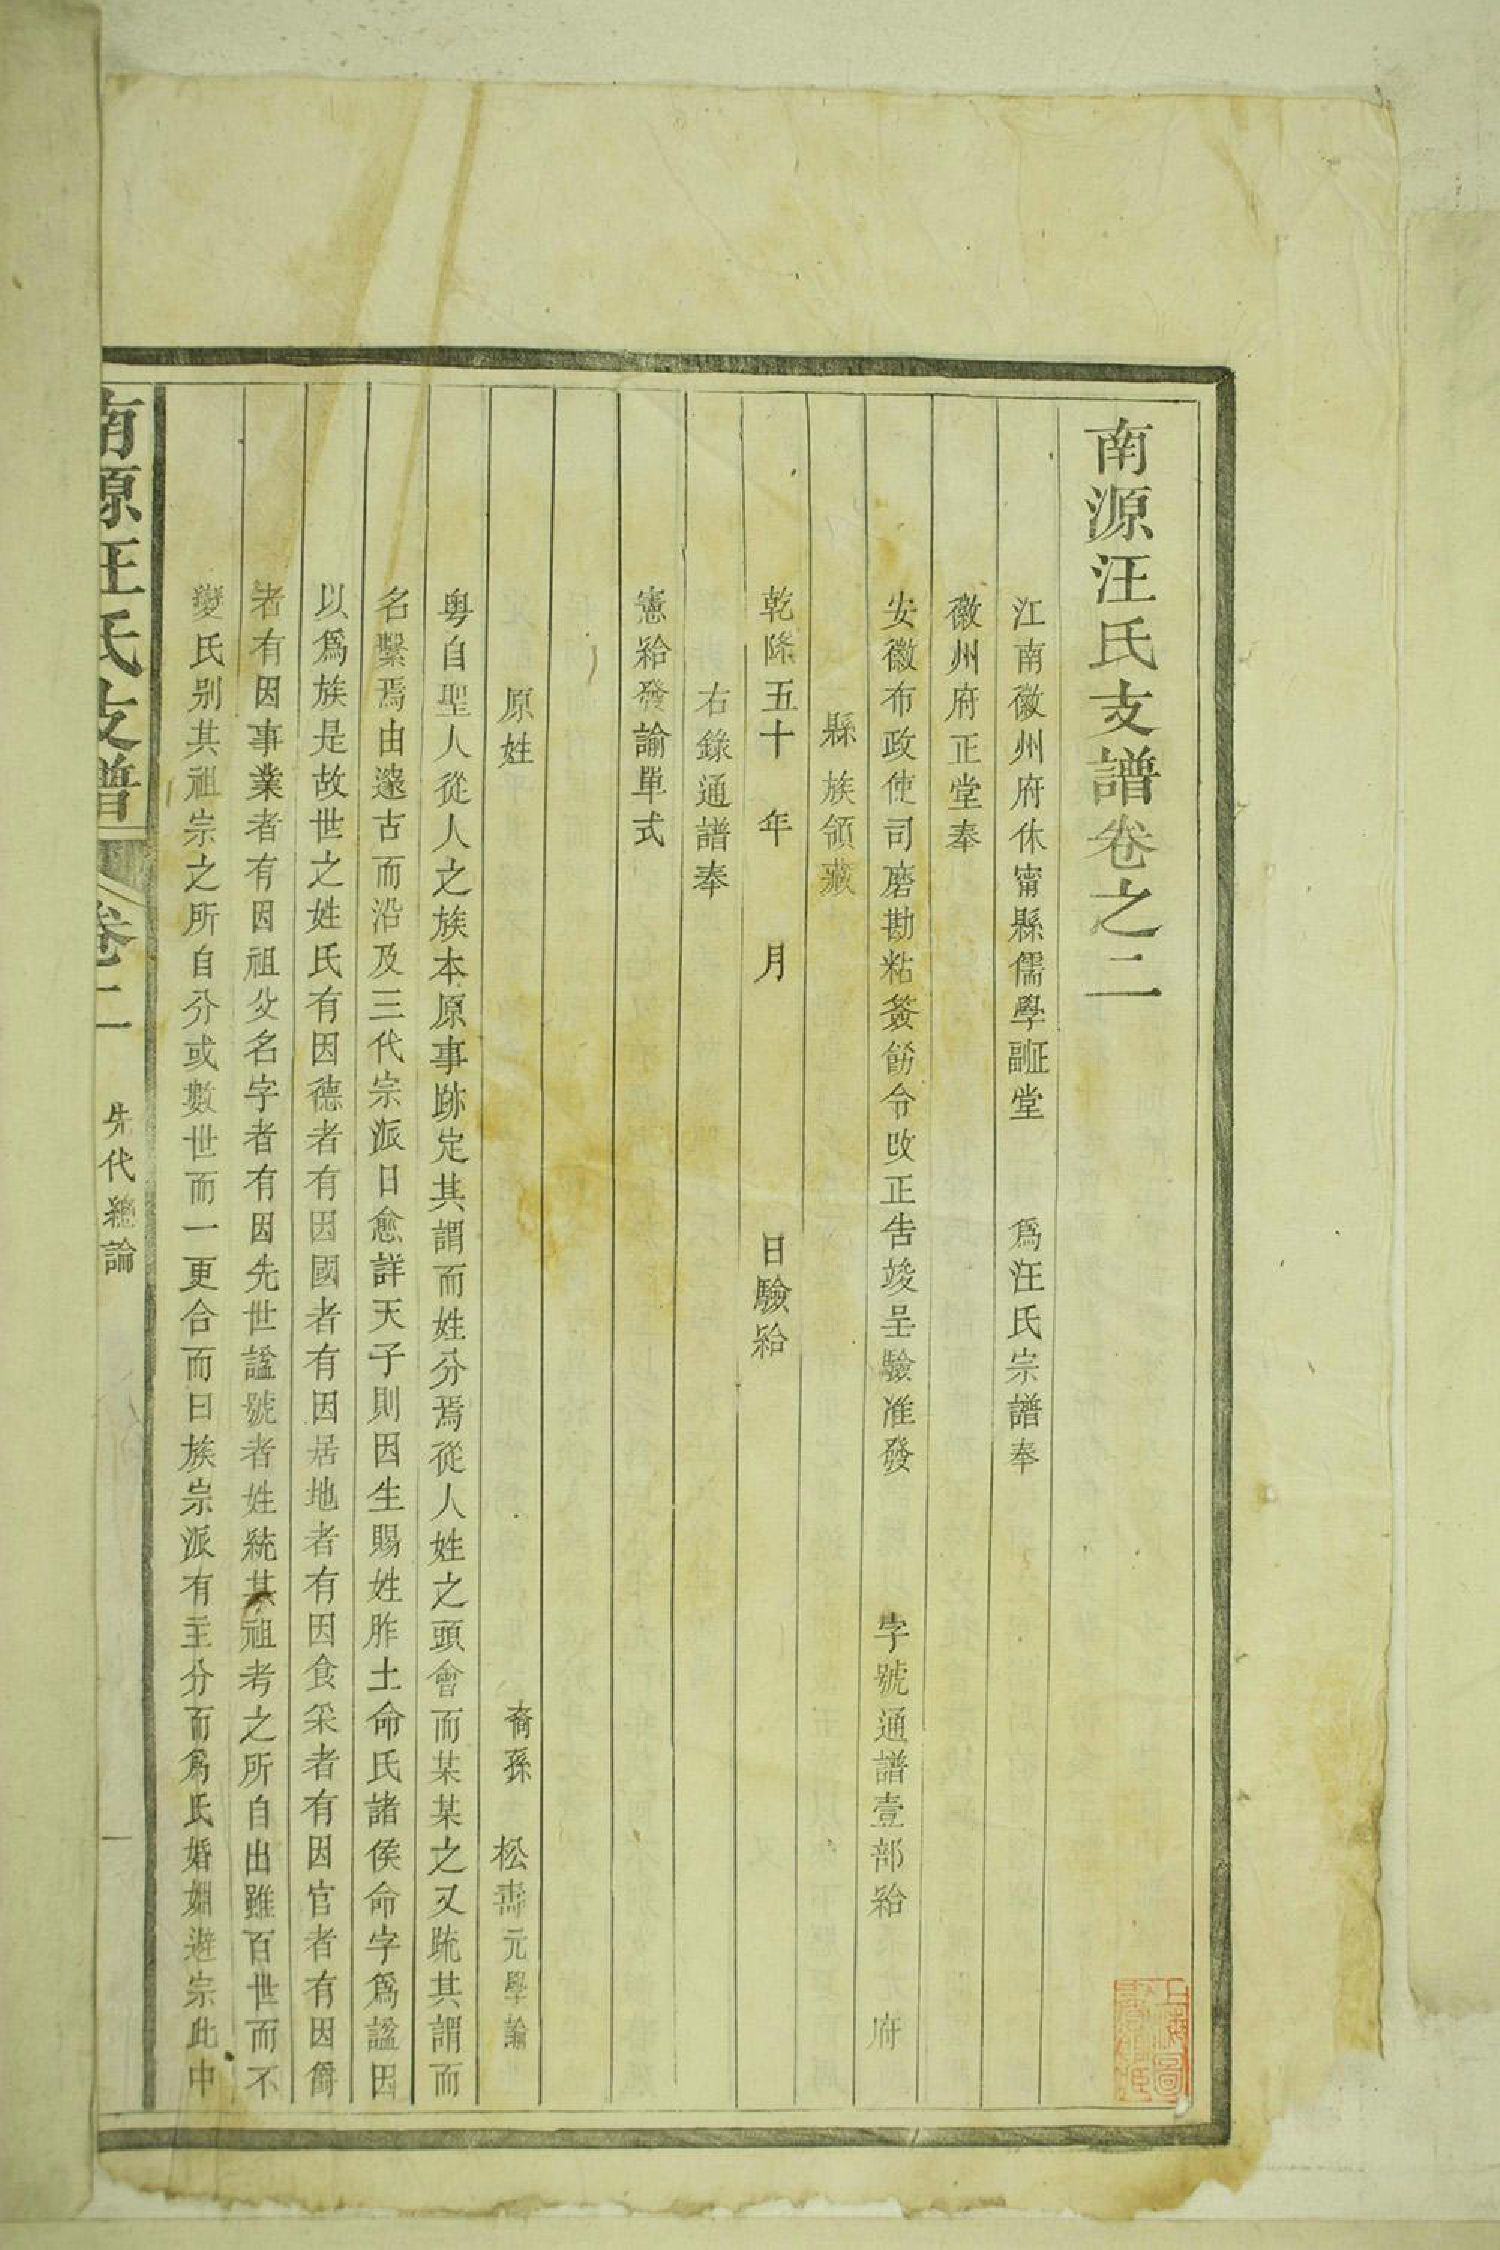 南源汪氏支譜卷之二
江南徽州府休甯縣儒學副正堂　爲汪氏宗譜奉
徽州府正堂奉
安徽布政使司磨勘粘簽飭令改正告竣呈驗准發　字號通譜壹部給　府
縣　族領藏
乾隆五十　年　月　日驗給
右錄通譜奉
憲給發諭單式
原姓　裔孫　松壽元學論
粤自聖人從人之族本原事跡定其謂而姓分焉從人姓之頭會而某某之又䟽其謂而
名繫焉由邃古而沿及三代宗派日愈詳天子則因生賜姓胙土命氏諸侯命字爲諡因
以爲族是故世之姓氏有因德者有因國者有因居地者有因食采者有因官者有因爵
者有因事業者有因祖父名字者有因先世諡號者姓統其祖考之所自出雖百世而不
變氏别其祖宗之所自分或數世而一更合而曰族宗派有主分而爲氏婚姻避宗此中
南源汪氏支譜　卷二　先代總論　一
上海圖